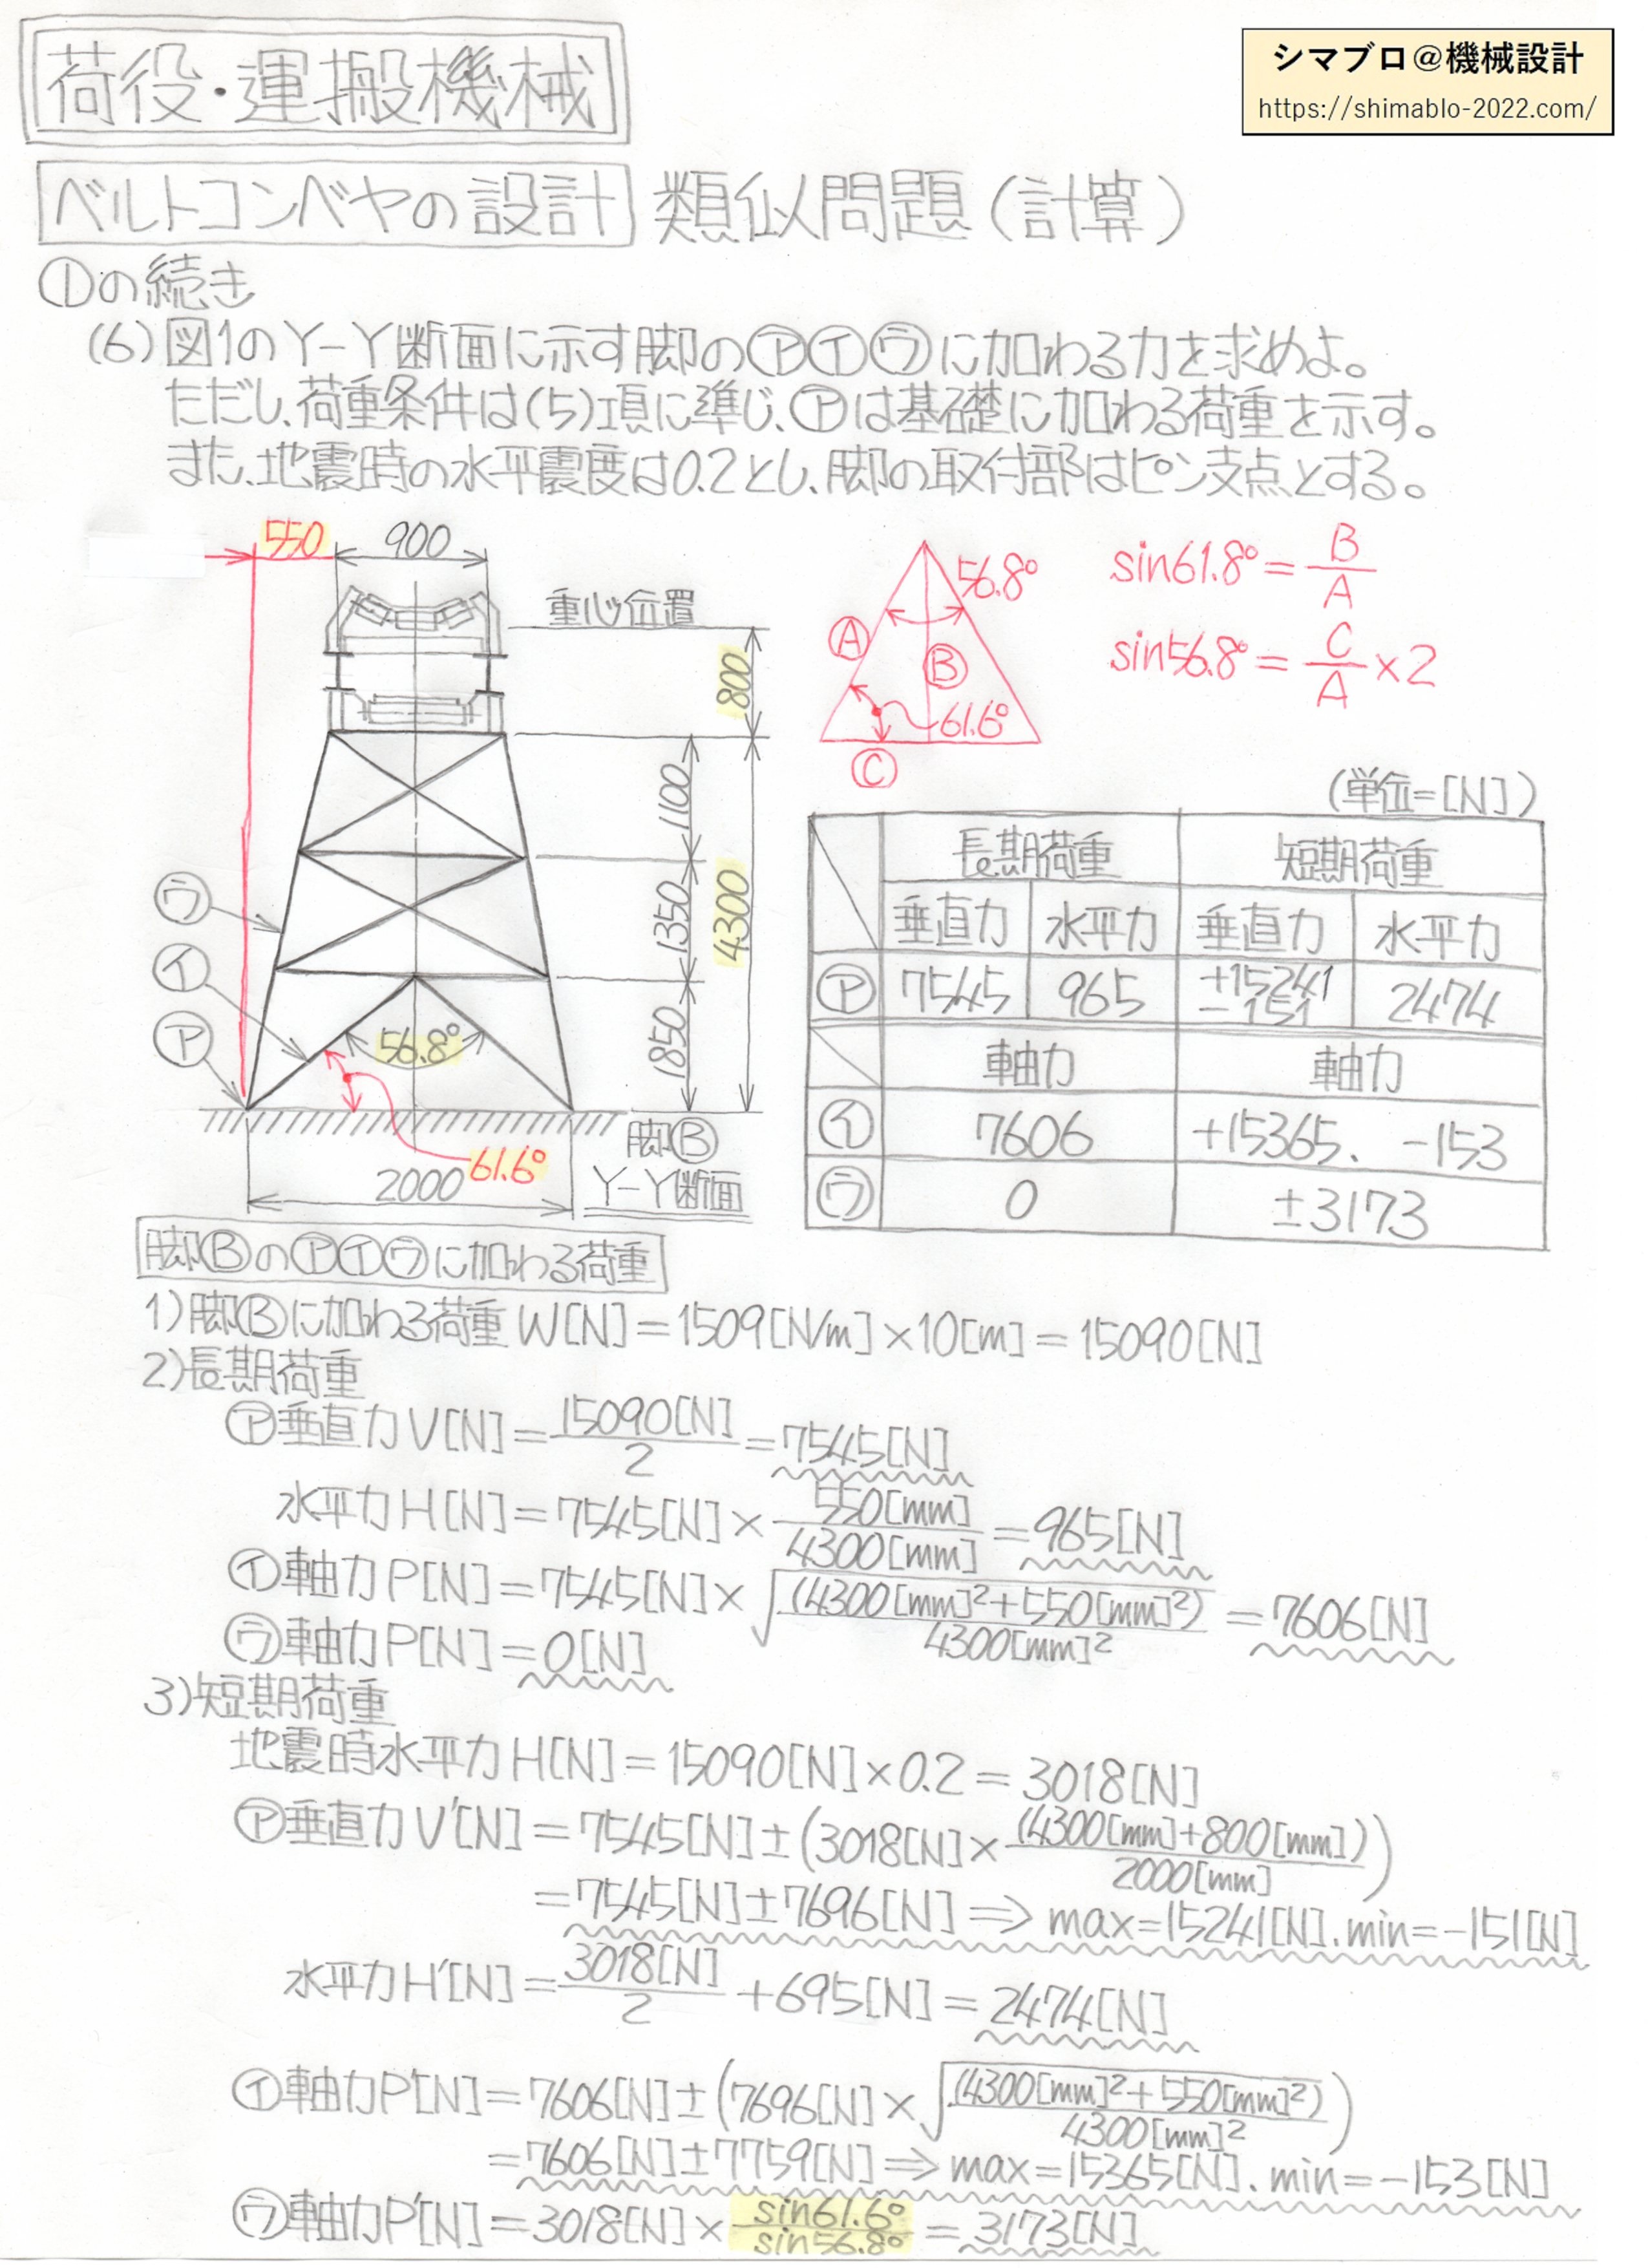 荷役・運搬機械
シマブロ@機械設計
https://shimablo-2022.com/
ベルトコンベヤの設計 類似問題(計算)
①の続き
(6)図1のY-Y断面に示す脚の㋐㋑㋒に加わる力を求めよ。
ただし、荷重条件は(5)項に準じ、㋐は基礎に加わる荷重を示す。
また、地震時の水平震度は0.2とし、脚の取付部はピン支点とする。
550
900
重心位置
800
1100
1350
4300
1850
㋒
㋑
㋐
56.8°
61.6°
2000
脚Ⓑ
Y-Y断面
56.8°
Ⓐ
Ⓑ
61.6°
Ⓒ
sin61.8°=B/A
sin56.8°=C/A×2
(単位=[N])
長期荷重 短期荷重
垂直力 水平力 垂直力 水平力
㋐ 7545 965 +15241 -151 2474
軸力 軸力
㋑ 7606 +15365. -153
㋒ 0 ±3173
脚Ⓑの㋐㋑㋒に加わる荷重
1)脚Ⓑに加わる荷重W[N]=1509[N/m]×10[m]=15090[N]
2)長期荷重
㋐垂直力V[N]=15090[N]/2=7545[N]
水平力H[N]=7545[N]×550[mm]/4300[mm]=965[N]
㋑軸力P[N]=7545[N]×√((4300[mm]²+550[mm]²)/4300[mm]²)=7606[N]
㋒軸力P[N]=0[N]
3)短期荷重
地震時水平力H[N]=15090[N]×0.2=3018[N]
㋐垂直力V'[N]=7545[N]±(3018[N]×(4300[mm]+800[mm])/2000[mm])
=7545[N]±7696[N]⇒max=15241[N].min=-151[N]
水平力H'[N]=3018[N]/2+695[N]=2474[N]
㋑軸力P'[N]=7606[N]±(7696[N]×√((4300[mm]²+550[mm]²)/4300[mm]²))
=7606[N]±7759[N]⇒max=15365[N].min=-153[N]
㋒軸力P'[N]=3018[N]×sin61.6°/sin56.8°=3173[N]